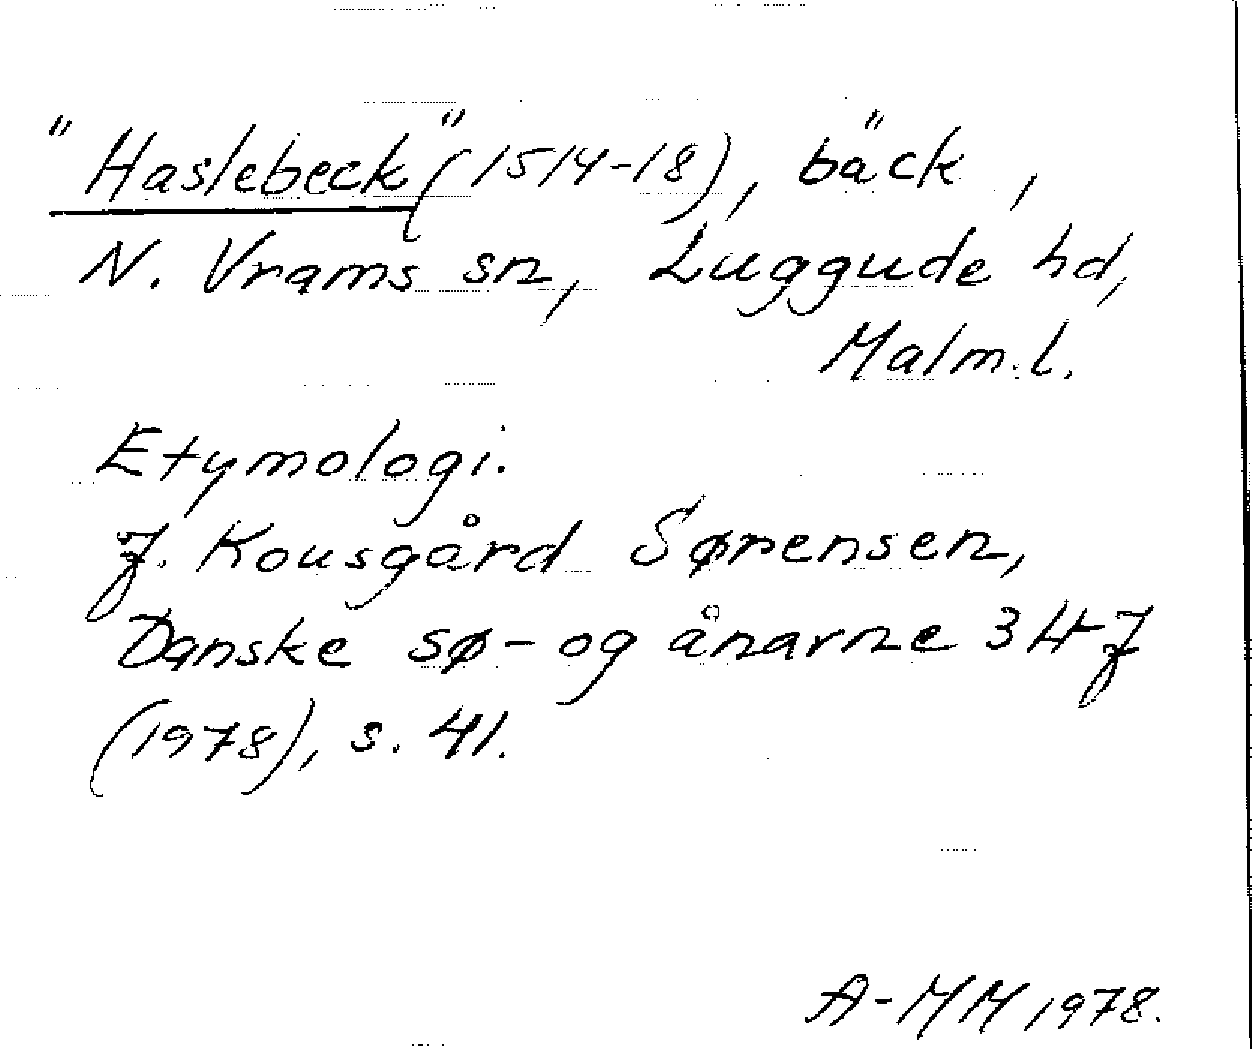 "Haslebeck" (1514-18), bäck,
N. Vrams sn, Luggude hd,
Malm. l.
Etymologi.
J. Kousgård Sørensen,
Danske sø- og ånavne 3 H-J
(1978), s. 41.
A-MM 1978.